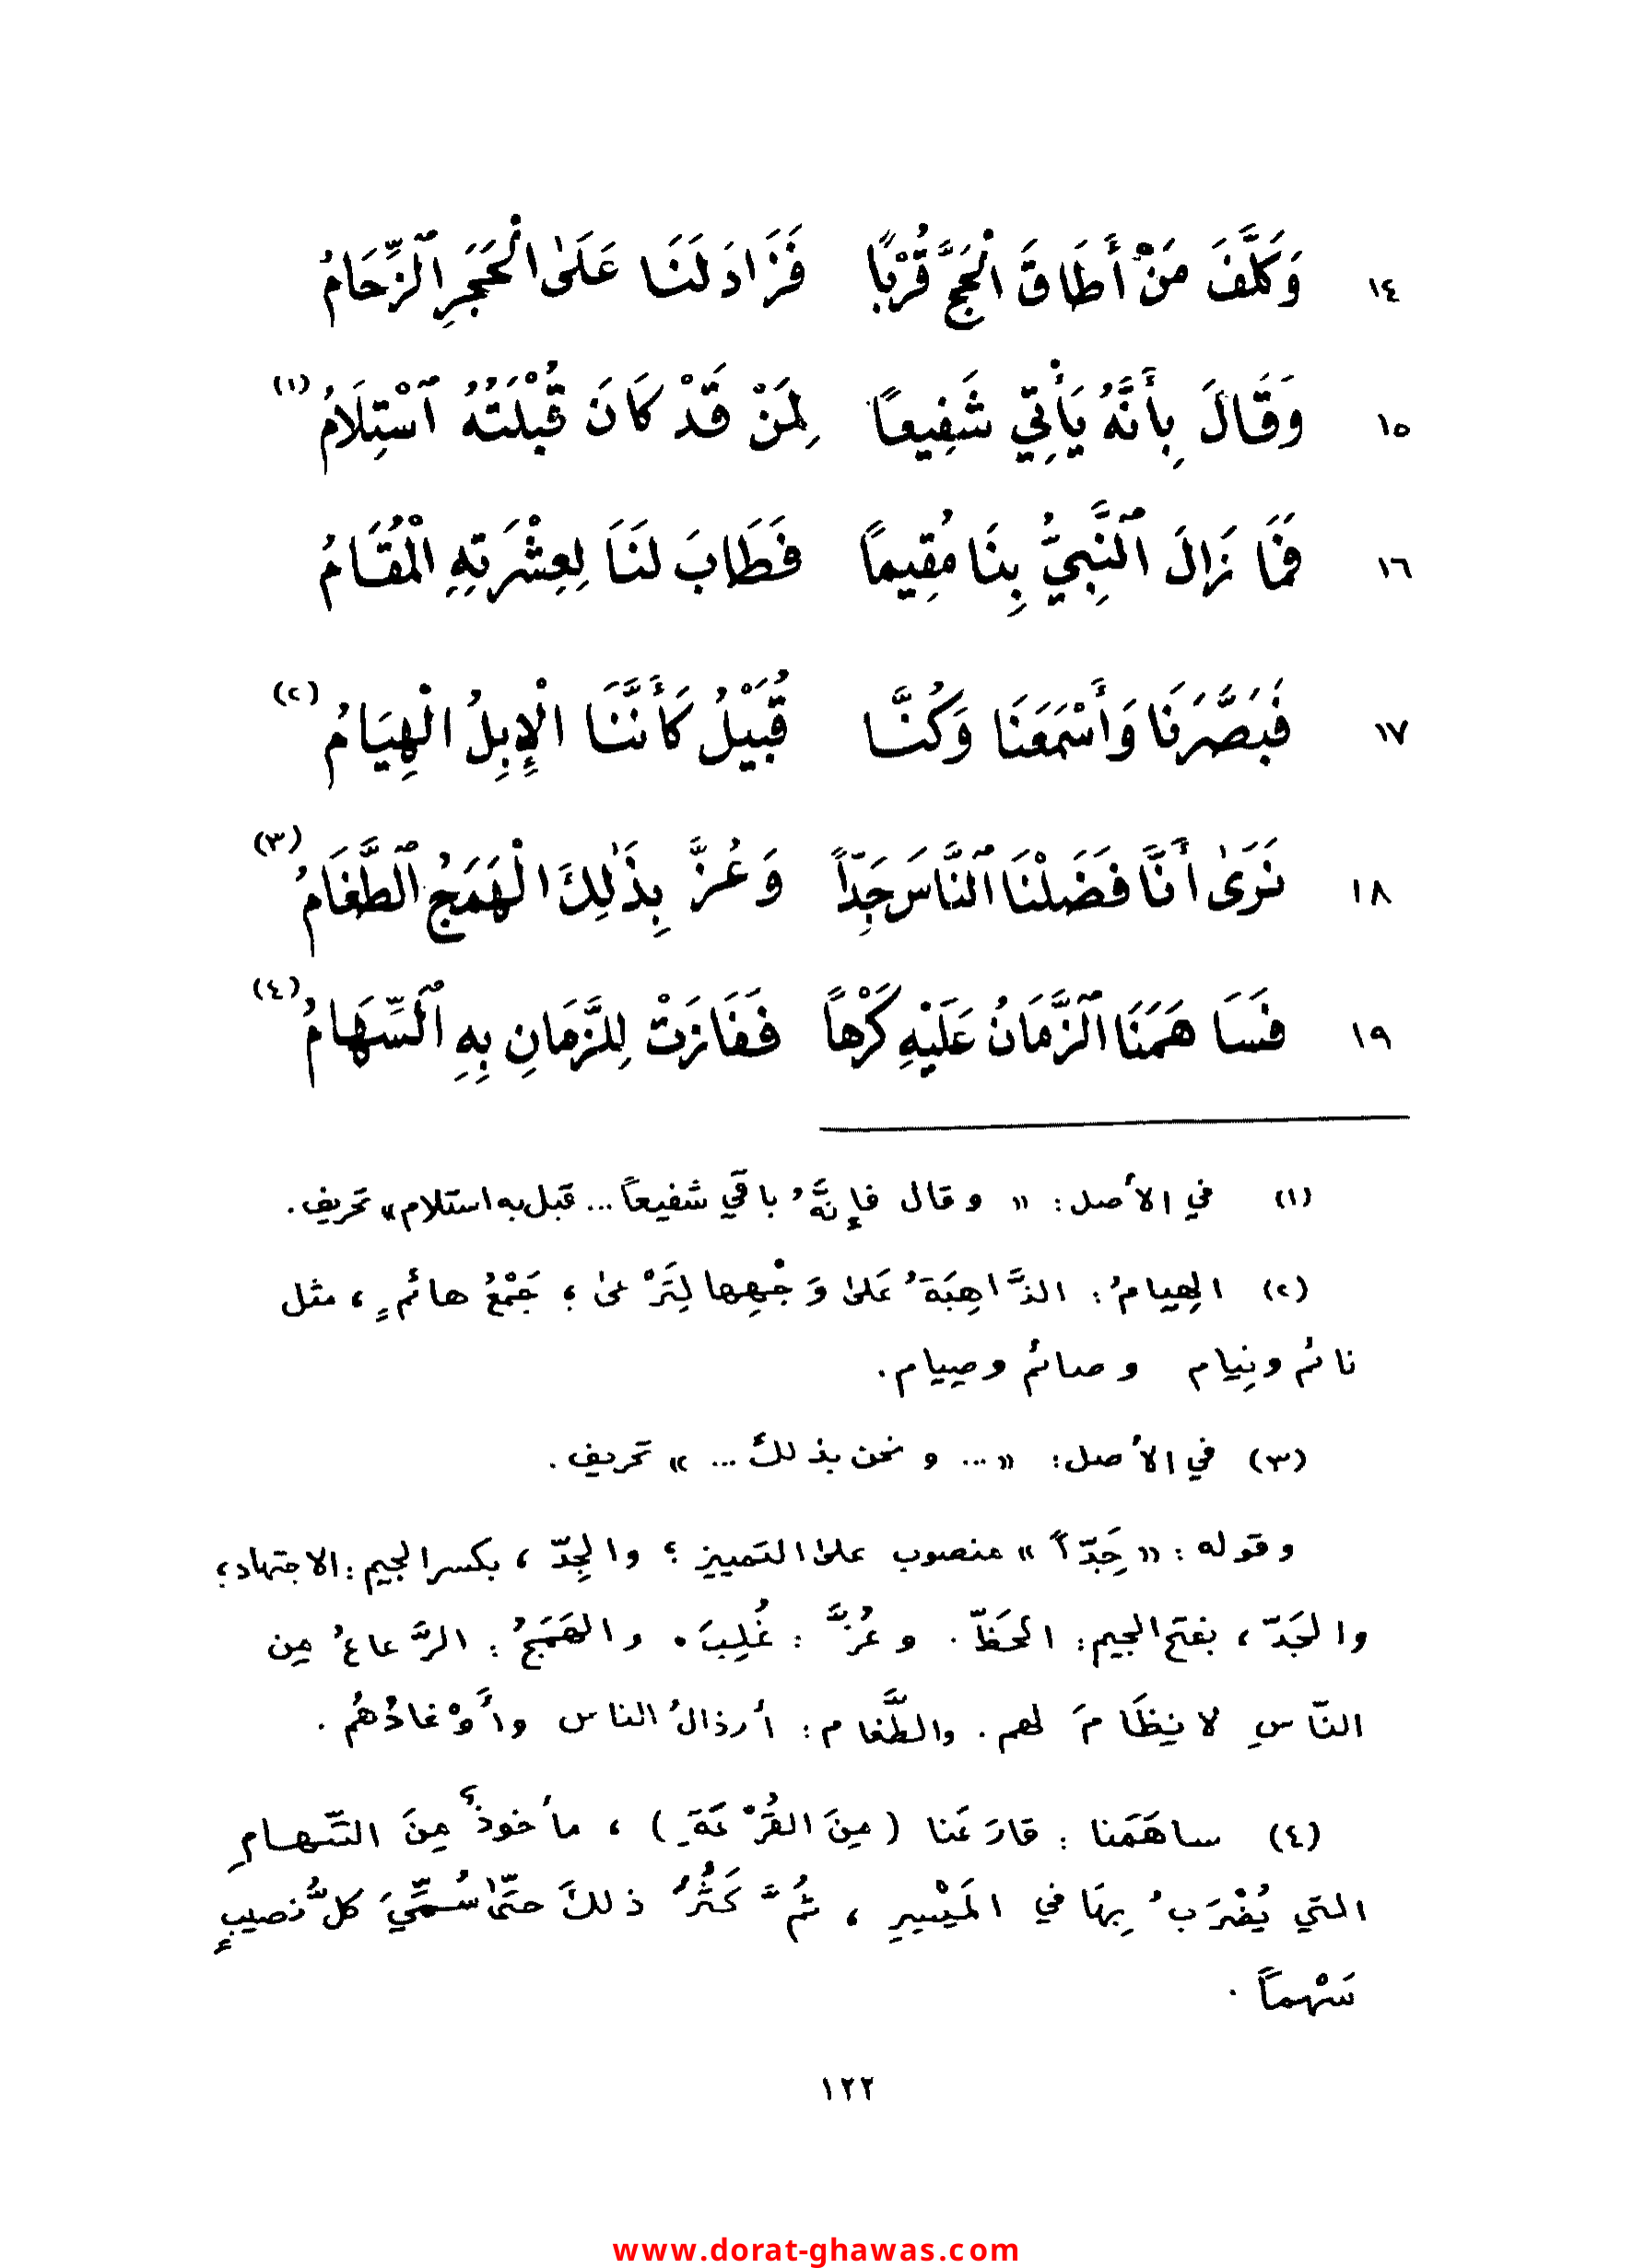 ١٤ وَكَلَّفَ مَنْ أَطَاقَ الْحَجَّ قُرْبًا فَزَادَ لَنَا عَلَىٰ الْحَجَرِ ٱلزِّحَامُ
١٥ وَقَالَ بِأَنَّهُ يَأْتِي شَفِيعًا لِمَنْ قَدْ كَانَ قُبْلَتُهُ ٱسْتِلَامُ (١)
١٦ فَمَا زَالَ ٱلنَّبِيُّ بِنَا مُقِيمًا فَطَابَ لَنَا لِعِشْرَتِهِ الْمُقَامُ
١٧ فَبَصَّرَنَا وَأَسْمَعَنَا وَكُنَّا قُبَيْلُ كَأَنَّنَا الْإِبِلُ الْهِيَامُ (٢)
١٨ نَرَىٰ أَنَّا فَضَلْنَا ٱلنَّاسَ جَِدّاً وَعُزَّ بِذَٰلِكَ الْهَمَجُ ٱلطَّغَامُ (٣)
١٩ فَسَاهَمَنَا ٱلزَّمَانُ عَلَيْهِ كَرْهاً فَفَازَتْ لِلزَّمَانِ بِهِ ٱلسِّهَامُ (٤)
(١) في الأصل: « وقال فإنَّهُ باقي شفيعاً ... قبل به استلام » تحريف.
(٢) الهِيامُ: الذَّاهِبَةُ عَلىٰ وَجْهِها لِتَرْعىٰ ؛ جَمْعُ هائمٍ ، مثل
نائم ونِيام وصائم وصِيام.
(٣) في الأصل: « ... ونحن بذلك ... » تحريف.
وقوله: « جَِدّاً » منصوب علىٰ التمييز ؛ والجِدّ ، بكسر الجيم: الاجتهاد ؛
والجَدّ ، بفتح الجيم: الحَظّ. وعُزَّ : غُلِبَ. والهَمَجُ: الرَّعاعُ مِن
النّاسِ لا نِظَامَ لهم. والطَّغام: أرذالُ الناس وأَوْغادُهُم.
(٤) ساهَمَنا : قارَعَنا (مِنَ القُرْعَةِ) ، مأخوذٌ مِنَ السِّهامِ
التي يُضْرَبُ بِهَا في المَيْسِرِ ، ثُمَّ كَثُرَ ذلكَ حتّىٰ سُمِّيَ كلُّ نصيبٍ
سَهْماً .
١٢٢
www.dorat-ghawas.com